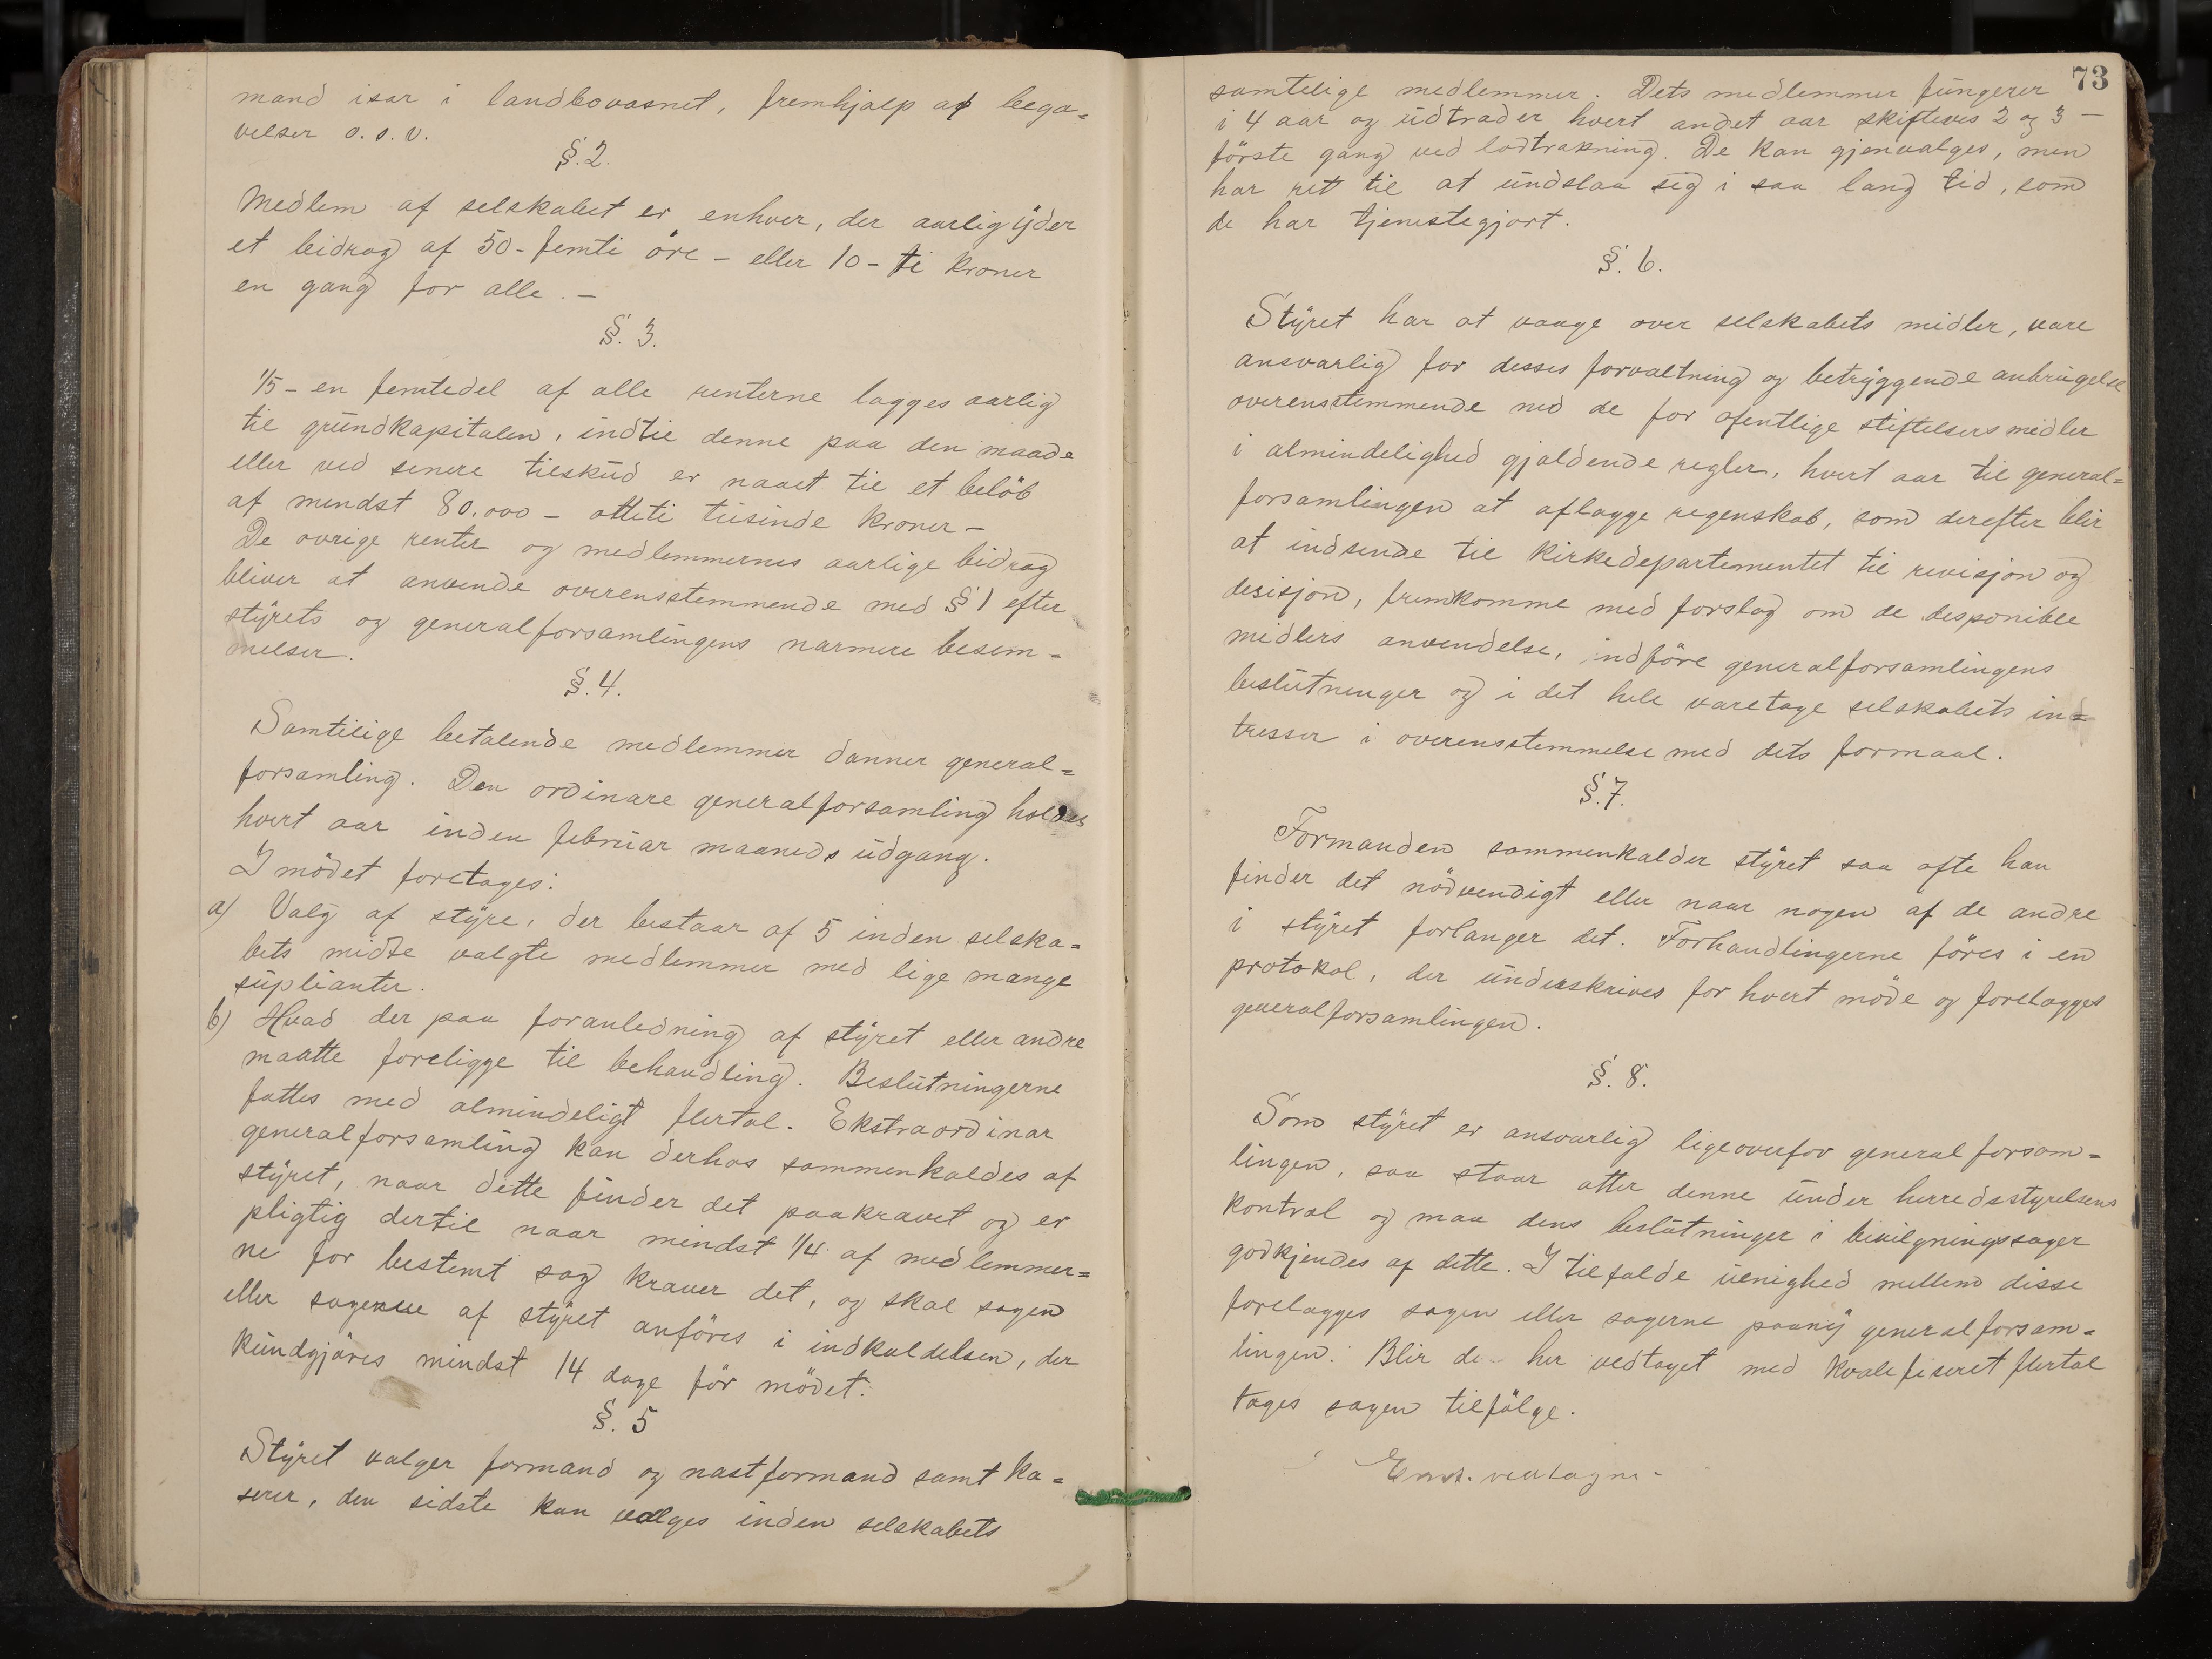 mand isar i landbovasnet, fremhjalp af bega=
velser o. s. v.
§. 2.
Medlem af selskabet er enhver, der aarlig yder
et bidrag af 50 - femti öre - eller 10 - ti kroner
en gang for alle. -
§. 3.
1/5 - en femtedel af alle renterne lagges aarlig
til grundkapitalen, indtil denne paa den maade
eller ved senere tilskud er naaet til et belöb
af mindst 80.000 - otteti tusinde kroner -
De ovrige renter og medlemmernes aarlige bidrag
bliver at anvende overensstemmende med § 1 efter
styrets og generalforsamlingens narmere besem=
melser.
§. 4.
Samtlige betalende medlemmer danner general=
forsamling. Den ordinare generalforsamling holdes
hvert aar inden februar maaneds udgang.
I mödet foretages:
a) Valg af styre, der bestaar af 5 inden selska=
bets midte valgte medlemmer med lige mange
suplianter.
b) Hvad der paa foranledning af styret eller andre
maatte foreligge til behandling. Beslutningerne
fattes med almindeligt flertal. Ekstraordinar
generalforsamling kan derhos sammenkaldes af
styret, naar dette finder det paakravet og er
pligtig dertil naar mindst 1/4 af medlemmer=
ne for bestemt sag kraver det, og skal sagen
eller sagerne af styret anföres i indkaldelsen, der
kundgjöres mindst 14 dage för mödet.
§. 5
Styret valger formand og nastformand samt ka=
serer, den sidste kan valges inden selskabets
73
samtlige medlemmer. Dets medlemmer fungerer
i 4 aar og udtrader hvert andet aar skiftevis 2 og 3 -
förste gang ved lodtrakning. De kan gjenvalges, men
har ret til at undslaa sig i saa lang tid, som
de har tjenestegjort.
§. 6.
Styret har at vaage over selskabets midler, vare
ansvarlig for desses forvaltning og betryggende anbrugelse
overensstemmende med de for ofentlige stiftelsers midler
i almindelighed gjaldende regler, hvert aar til general=
forsamlingen at aflagge regenskab, som derefter blir
at indsende til kirkedepartementet til revisjon og
desisjon, fremkomme med forslag om de disponible
midlers anvendelse, indföre generalforsamlingens
beslutninger og i det hele varetage selskabets in=
tresser i overensstemmelse med dets formaal.
§. 7.
Formanden sammenkalder styret saa ofte han
finder det nödvendigt eller naar nogen af de andre
i styret forlanger det. Forhandlingerne föres i en
protokol, der underskrives for hvert möde og forelagges
generalforsamlingen.
§. 8.
Som styret er ansvarlig ligeoverfor generalforsam=
lingen, saa staar atter denne under herredsstyrelsens
kontrol og maa dens beslutninger i bivilgningssager
godkjendes af dette. I tilfalde uenighed mellem disse
forelagges sagen eller sagerne paany generalforsam=
lingen. Blir de her vedtaget med kvalefiseret flertal
tages sagen tilfölge.
Enst. vedtagne -